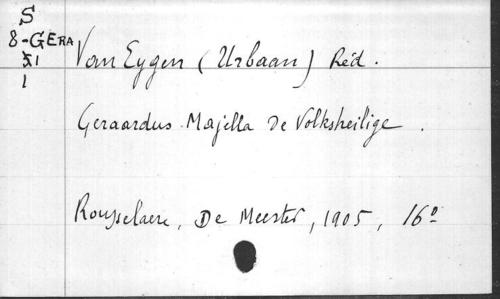 S
8-GERA
51
1
Van Eygen (Urbaan) Réd.
Geraardus Majella de Volksheilige.
Rousselaere, De Meester, 1905, 16º